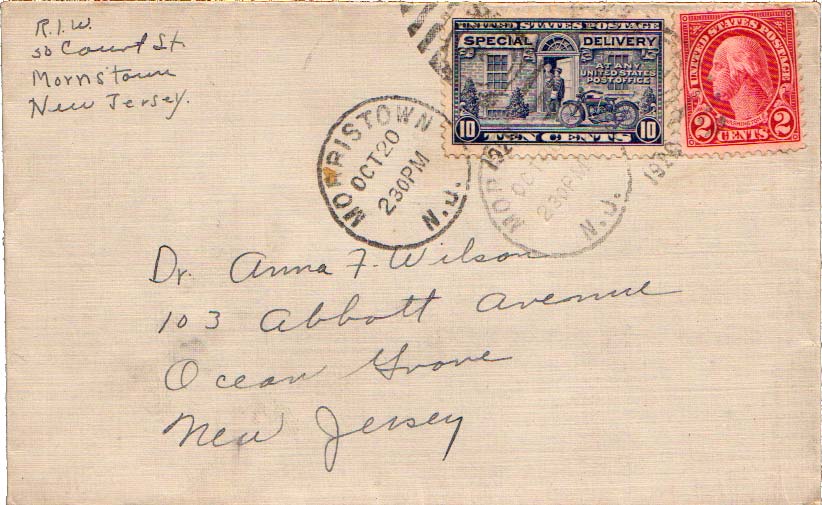 R.I.W.
30 Court St.
Morristown
New Jersey.
UNITED STATES POSTAGE
SPECIAL DELIVERY
AT ANY
UNITED STATES
POST OFFICE
10 TEN CENTS 10
UNITED STATES POSTAGE
WASHINGTON
2 CENTS 2
MORRISTOWN
OCT 20
230 PM
N.J.
OCT
230 PM
N.J.
Dr. Anna F. Wilson
103 Abbott Avenue
Ocean Grove
New Jersey